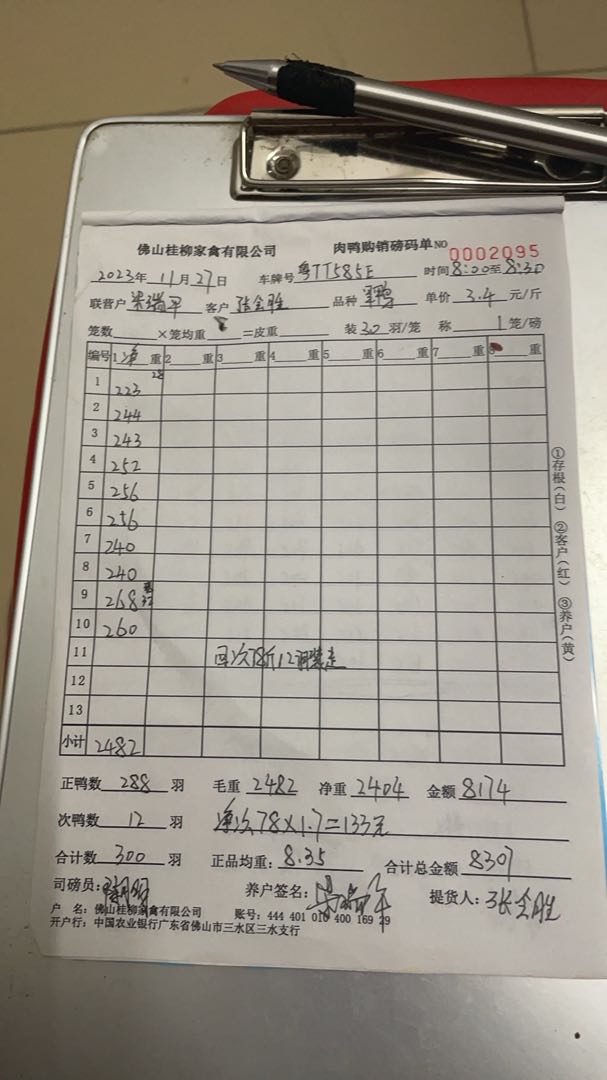 佛山桂柳家禽有限公司 肉鸭购销磅码单 NO 0002095
2023年 11月 27日 车牌号 粤TT585E 时间 8:00至8:30
联营户 梁瑞平 客户 张全胜 品种 鸭 单价 3.4 元/斤
笼数 ×笼均重 =皮重 装 20 羽/笼 称 1 笼/磅
编号 1 净 重 2 重 3 重 4 重 5 重 6 重 7 重 8 重
1 223 28
2 244
3 243
4 252
5 256
6 256
7 240
8 240
9 268 32
10 260
11 次78斤12
12
13
小计 2482
正鸭数 288 羽 毛重 2482 净重 2404 金额 8174
次鸭数 12 羽 次78×1.7=133元
合计数 300 羽 正品均重: 8.35 合计总金额 8307
司磅员: 养户签名: 梁瑞平 提货人: 张全胜
户 名: 佛山桂柳家禽有限公司 账号: 444 401 010 400 169 29
开户行: 中国农业银行广东省佛山市三水区三水支行
①存根(白) ②客户(红) ③养户(黄)